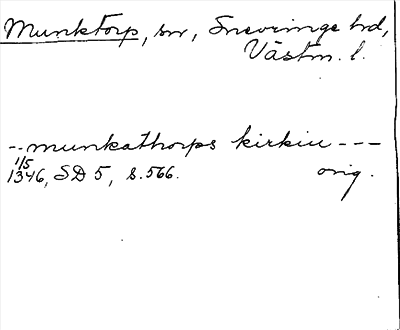 Munktorp, sn, Snevringe hd,
Västm. l.
-- munkathorps kirkiu ---
1/5
1346, SD 5, s. 566. orig.